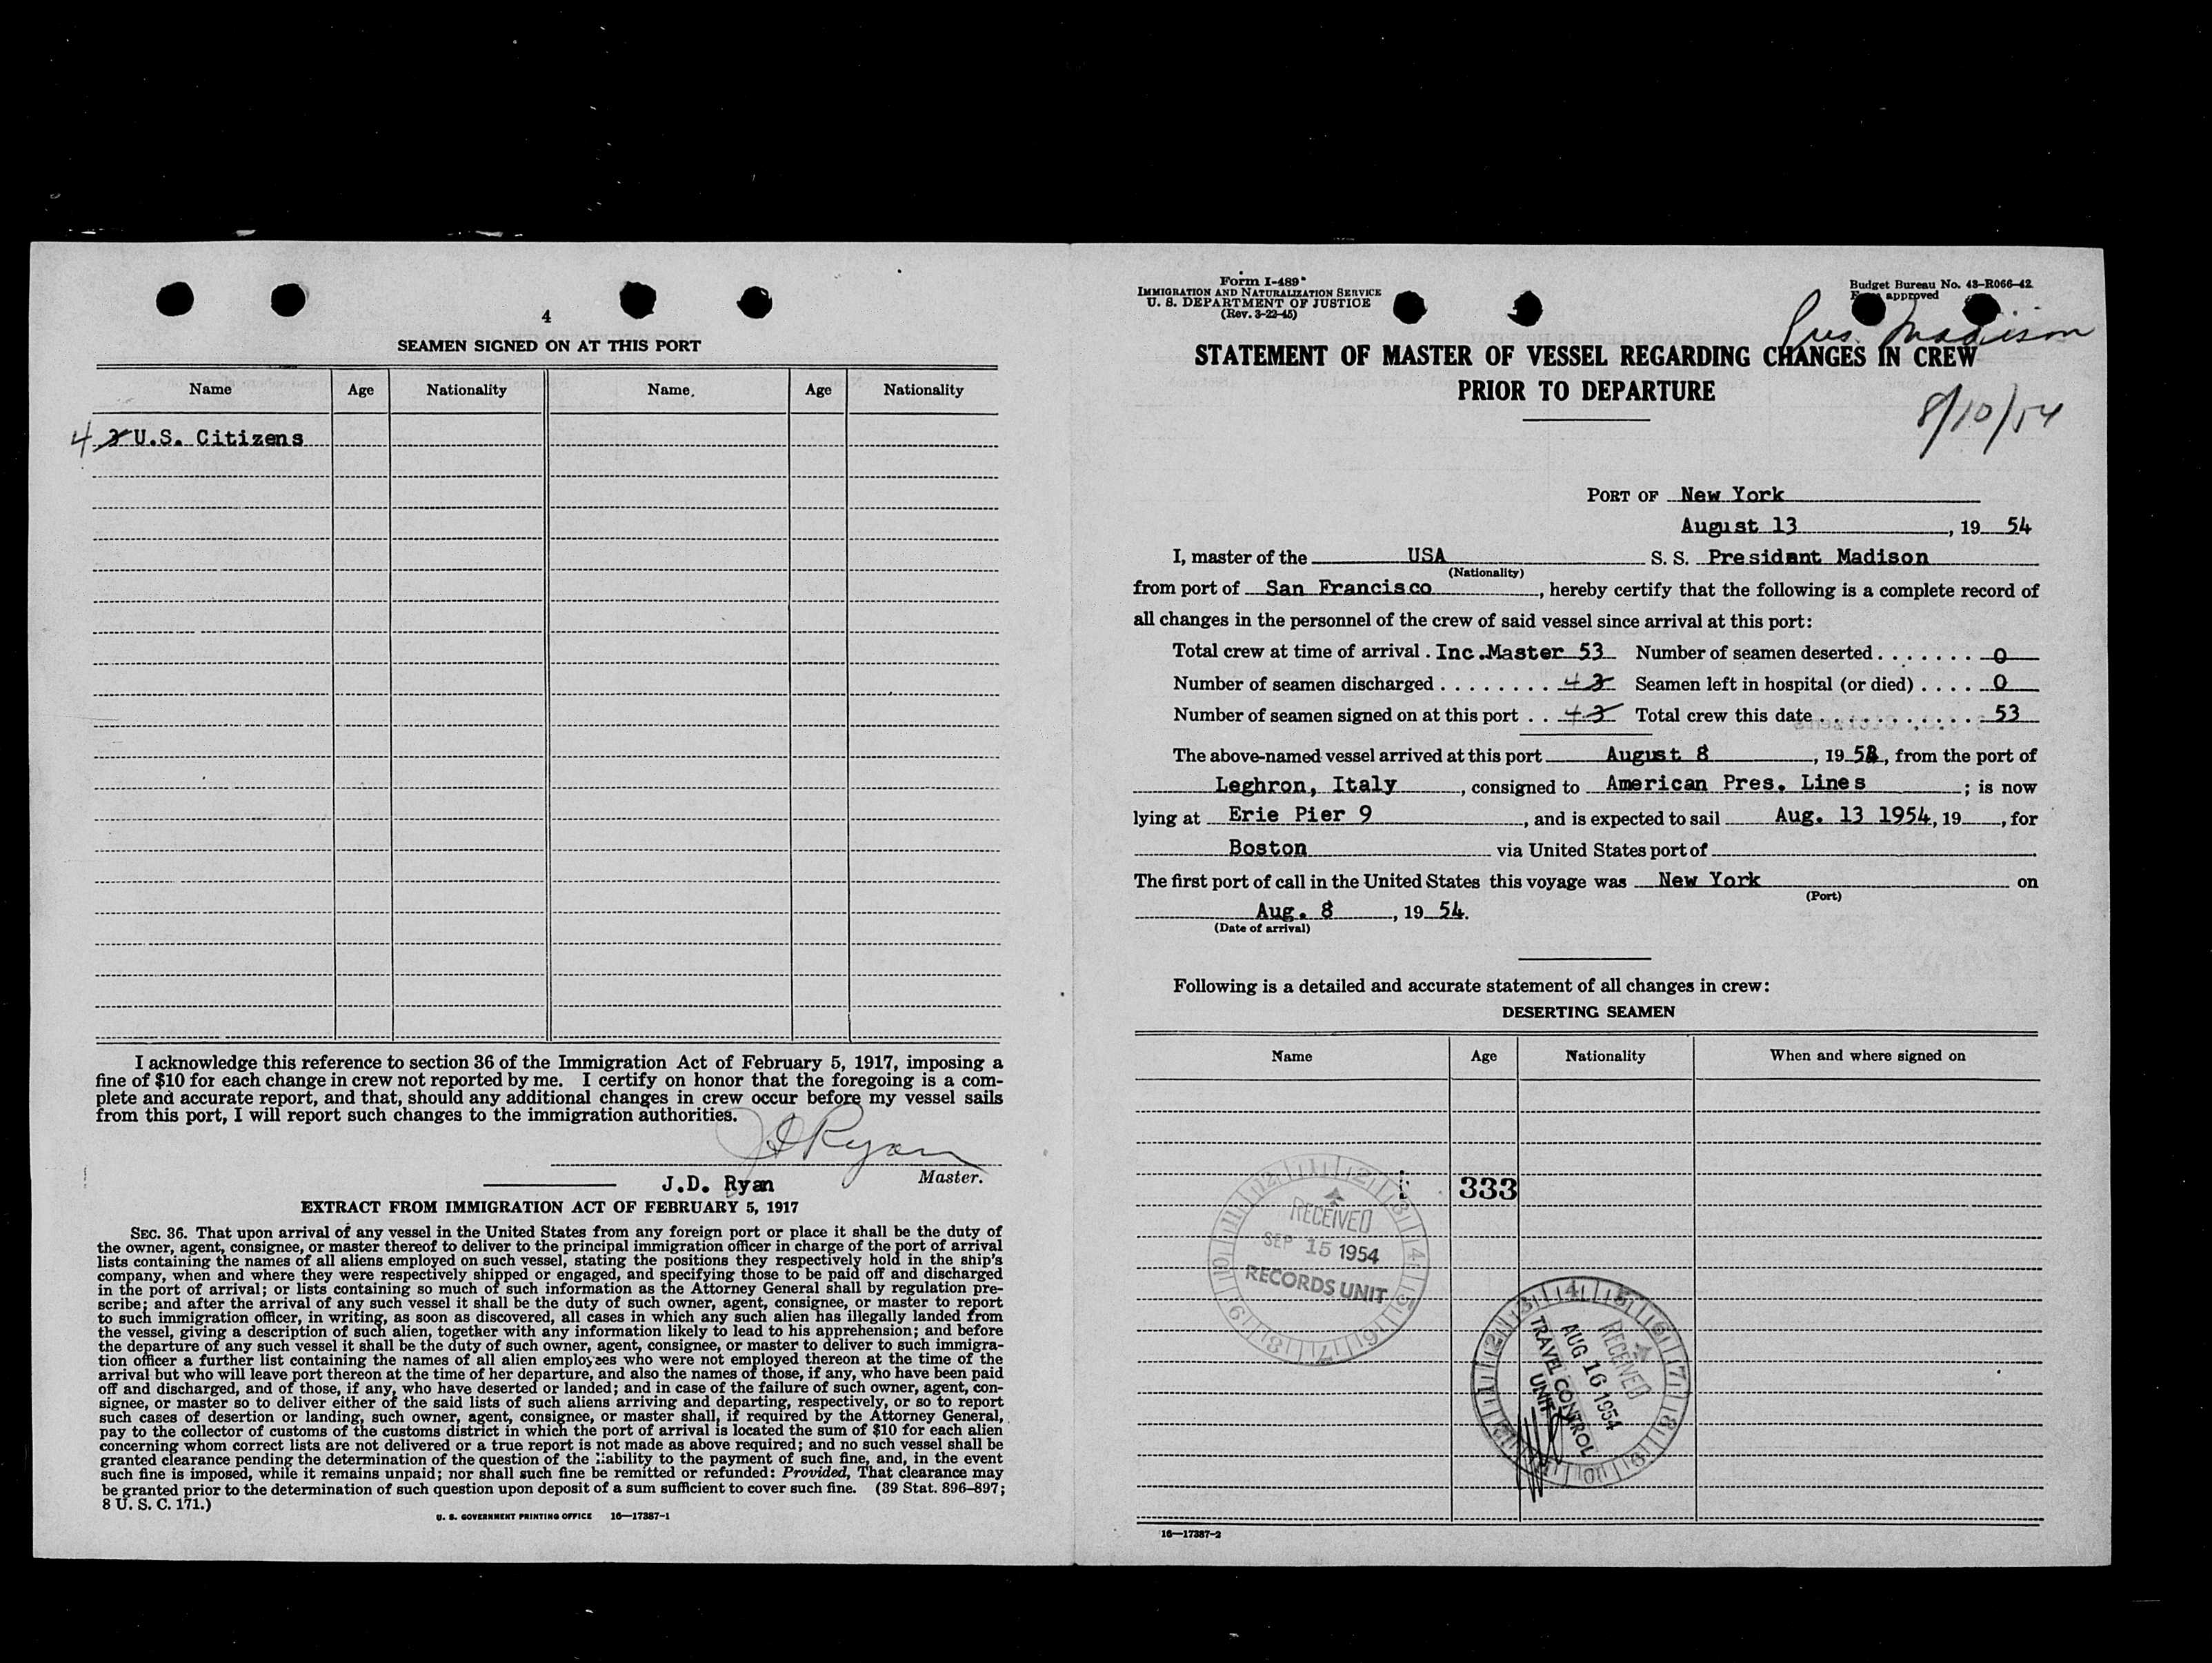 4
SEAMEN SIGNED ON AT THIS PORT
Name Age Nationality Name. Age Nationality
4 3 U.S. Citizens
I acknowledge this reference to section 36 of the Immigration Act of February 5, 1917, imposing a
fine of $10 for each change in crew not reported by me. I certify on honor that the foregoing is a com-
plete and accurate report, and that, should any additional changes in crew occur before my vessel sails
from this port, I will report such changes to the immigration authorities.
J D Ryan
Master.
J.D. Ryan
EXTRACT FROM IMMIGRATION ACT OF FEBRUARY 5, 1917
SEC. 36. That upon arrival of any vessel in the United States from any foreign port or place it shall be the duty of
the owner, agent, consignee, or master thereof to deliver to the principal immigration officer in charge of the port of arrival
lists containing the names of all aliens employed on such vessel, stating the positions they respectively hold in the ship's
company, when and where they were respectively shipped or engaged, and specifying those to be paid off and discharged
in the port of arrival; or lists containing so much of such information as the Attorney General shall by regulation pre-
scribe; and after the arrival of any such vessel it shall be the duty of such owner, agent, consignee, or master to report
to such immigration officer, in writing, as soon as discovered, all cases in which any such alien has illegally landed from
the vessel, giving a description of such alien, together with any information likely to lead to his apprehension; and before
the departure of any such vessel it shall be the duty of such owner, agent, consignee, or master to deliver to such immigra-
tion officer a further list containing the names of all alien employees who were not employed thereon at the time of the
arrival but who will leave port thereon at the time of her departure, and also the names of those, if any, who have been paid
off and discharged, and of those, if any, who have deserted or landed; and in case of the failure of such owner, agent, con-
signee, or master so to deliver either of the said lists of such aliens arriving and departing, respectively, or so to report
such cases of desertion or landing, such owner, agent, consignee, or master shall, if required by the Attorney General,
pay to the collector of customs of the customs district in which the port of arrival is located the sum of $10 for each alien
concerning whom correct lists are not delivered or a true report is not made as above required; and no such vessel shall be
granted clearance pending the determination of the question of the liability to the payment of such fine, and, in the event
such fine is imposed, while it remains unpaid; nor shall such fine be remitted or refunded: Provided, That clearance may
be granted prior to the determination of such question upon deposit of a sum sufficient to cover such fine. (39 Stat. 896–897;
8 U. S. C. 171.)
U. S. GOVERNMENT PRINTING OFFICE 16—17387-1
Form I-489
IMMIGRATION AND NATURALIZATION SERVICE
U. S. DEPARTMENT OF JUSTICE
(Rev. 3-22-45)
Budget Bureau No. 43-R066-42
approved
Pres. Madison
STATEMENT OF MASTER OF VESSEL REGARDING CHANGES IN CREW
PRIOR TO DEPARTURE
8/10/54
PORT OF New York
August 13, 19 54
I, master of the USA S. S. President Madison
(Nationality)
from port of San Francisco, hereby certify that the following is a complete record of
all changes in the personnel of the crew of said vessel since arrival at this port:
Total crew at time of arrival . Inc.Master 53 Number of seamen deserted . . . . . . . 0
Number of seamen discharged . . . . . . . . 4 3 Seamen left in hospital (or died) . . . . 0
Number of seamen signed on at this port . . 4 3 Total crew this date . . . . . . . . . . . 53
The above-named vessel arrived at this port August 8, 19 54, from the port of
Leghron, Italy, consigned to American Pres. Lines; is now
lying at Erie Pier 9, and is expected to sail Aug. 13 1954, 19, for
Boston via United States port of
The first port of call in the United States this voyage was New York on
(Port)
Aug. 8, 19 54.
(Date of arrival)
Following is a detailed and accurate statement of all changes in crew:
DESERTING SEAMEN
Name Age Nationality When and where signed on
333
RECEIVED
SEP 15 1954
RECORDS UNIT
RECEIVED
AUG 16 1954
TRAVEL CONTROL
UNIT
16—17387-2